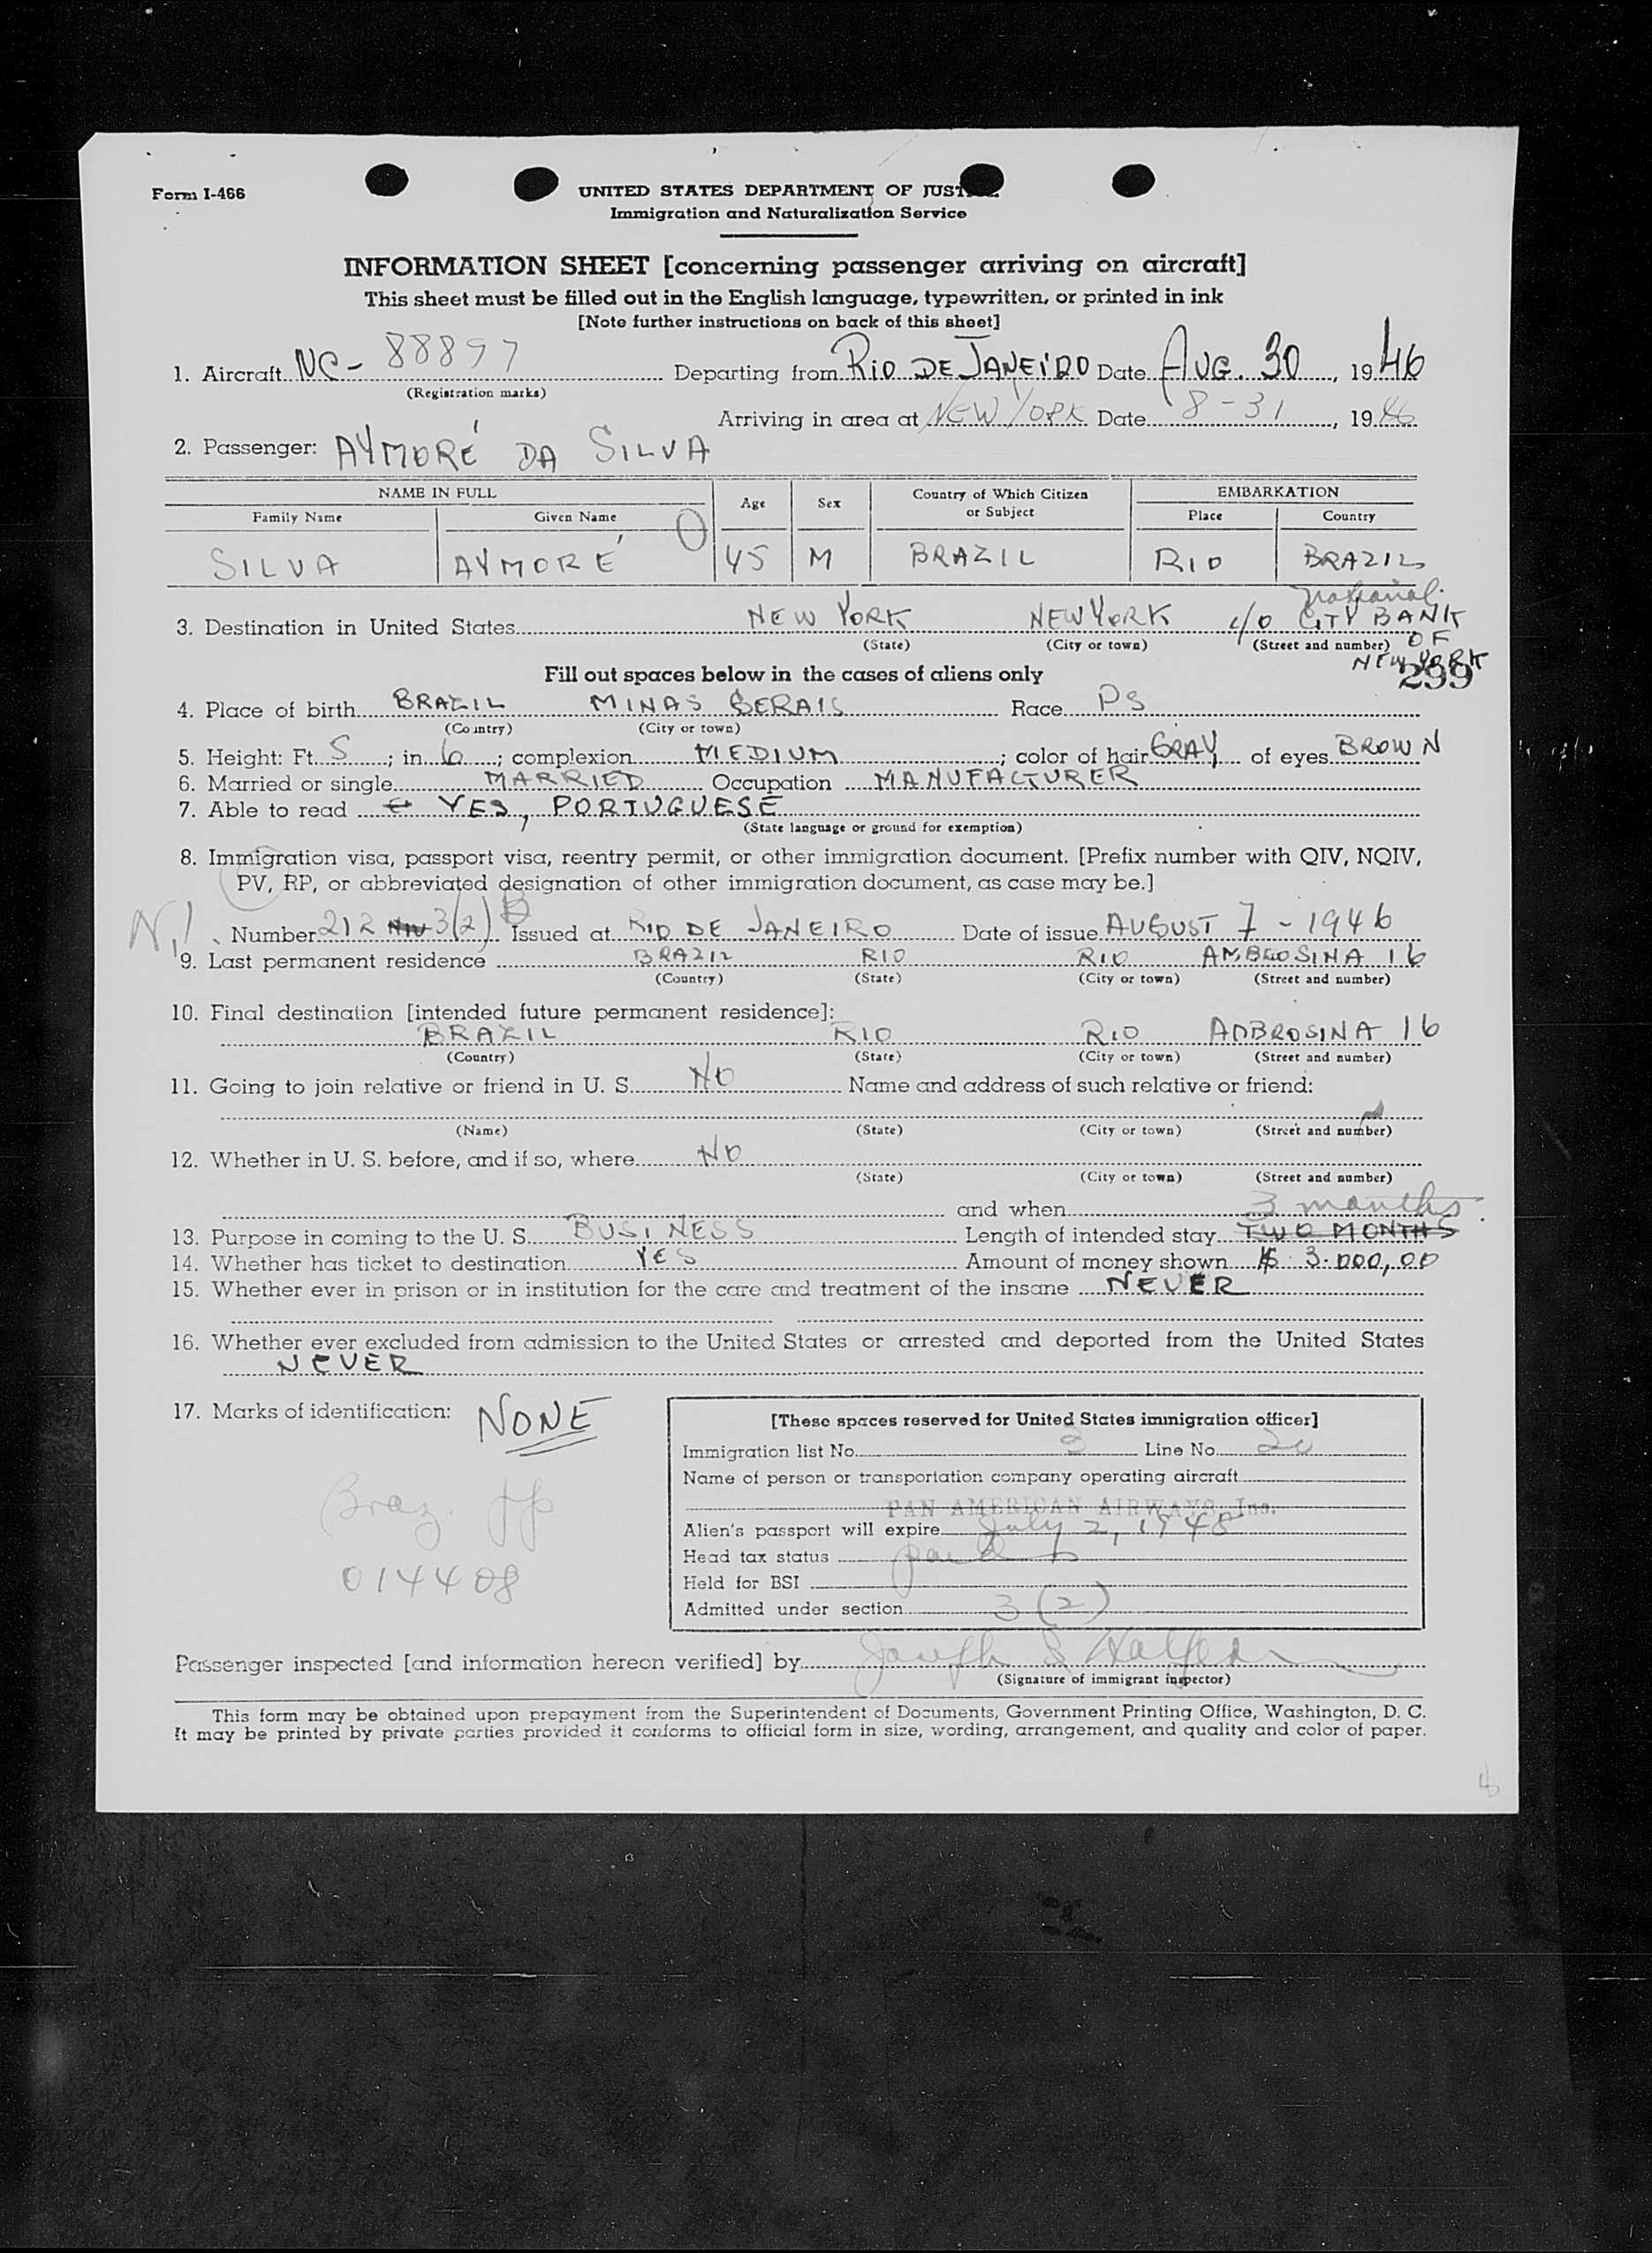 Form I-466
UNITED STATES DEPARTMENT OF JUST
Immigration and Naturalization Service
INFORMATION SHEET [concerning passenger arriving on aircraft]
This sheet must be filled out in the English language, typewritten, or printed in ink
[Note further instructions on back of this sheet]
1. Aircraft NC- 88897 Departing from RIO DE JANEIRO Date AUG. 30, 1946
(Registration marks)
Arriving in area at NEW YORK Date 8-31, 1946
2. Passenger: AYMORÉ DA SILVA
NAME IN FULL Age Sex Country of Which Citizen or Subject EMBARKATION
Family Name Given Name Place Country
SILVA AYMORÉ 45 M BRAZIL RIO BRAZIL
National
3. Destination in United States NEW YORK NEW YORK c/o CITY BANK
(State) (City or town) (Street and number) OF
NEW YORK
299
Fill out spaces below in the cases of aliens only
4. Place of birth BRAZIL MINAS GERAIS Race
(Country) (City or town)
5. Height: Ft. 5; in. 6; complexion MEDIUM; color of hair GRAY of eyes BROWN
6. Married or single MARRIED Occupation MANUFACTURER
7. Able to read YES, PORTUGUESE
(State language or ground for exemption)
8. Immigration visa, passport visa, reentry permit, or other immigration document. [Prefix number with QIV, NQIV,
PV, RP, or abbreviated designation of other immigration document, as case may be.]
Number 212 NIV 3(2) Issued at RIO DE JANEIRO Date of issue AUGUST 7 - 1946
9. Last permanent residence BRAZIL RIO RIO AMBROSINA 16
(Country) (State) (City or town) (Street and number)
10. Final destination [intended future permanent residece]:
BRAZIL RIO RIO AMBROSINA 16
(Country) (State) (City or town) (Street and number)
11. Going to join relative or friend in U. S. NO Name and address of such relative or friend:
(Name) (State) (City or town) (Street and number)
12. Whether in U. S. before, and if so, where NO
(State) (City or town) (Street and number)
and when 3 months
13. Purpose in coming to the U. S. BUSINESS Length of intended stay TWO MONTHS
14. Whether has ticket to destination YES Amount of money shown $ 3.000,00
15. Whether ever in prison or in institution for the care and treatment of the insane NEVER
16. Whether ever excluded from admission to the United States or arrested and deported from the United States
NEVER
17. Marks of identification: NONE
[These spaces reserved for United States immigration officer]
Immigration list No. 3 Line No. 20
Name of person or transportation company operating aircraft
PAN AMERICAN AIRWAYS, Inc.
Braz. pp
Alien's passport will expire July 2, 1948
Head tax status paid
014408
Held for BSI
Admitted under section 3(2)
Passenger inspected [and information hereon verified] by Joseph
(Signature of immigrant inspector)
This form may be obtained upon prepayment from the Superintendent of Documents, Government Printing Office, Washington, D. C.
It may be printed by private parties provided it conforms to official form in size, wording, arrangement, and quality and color of paper.